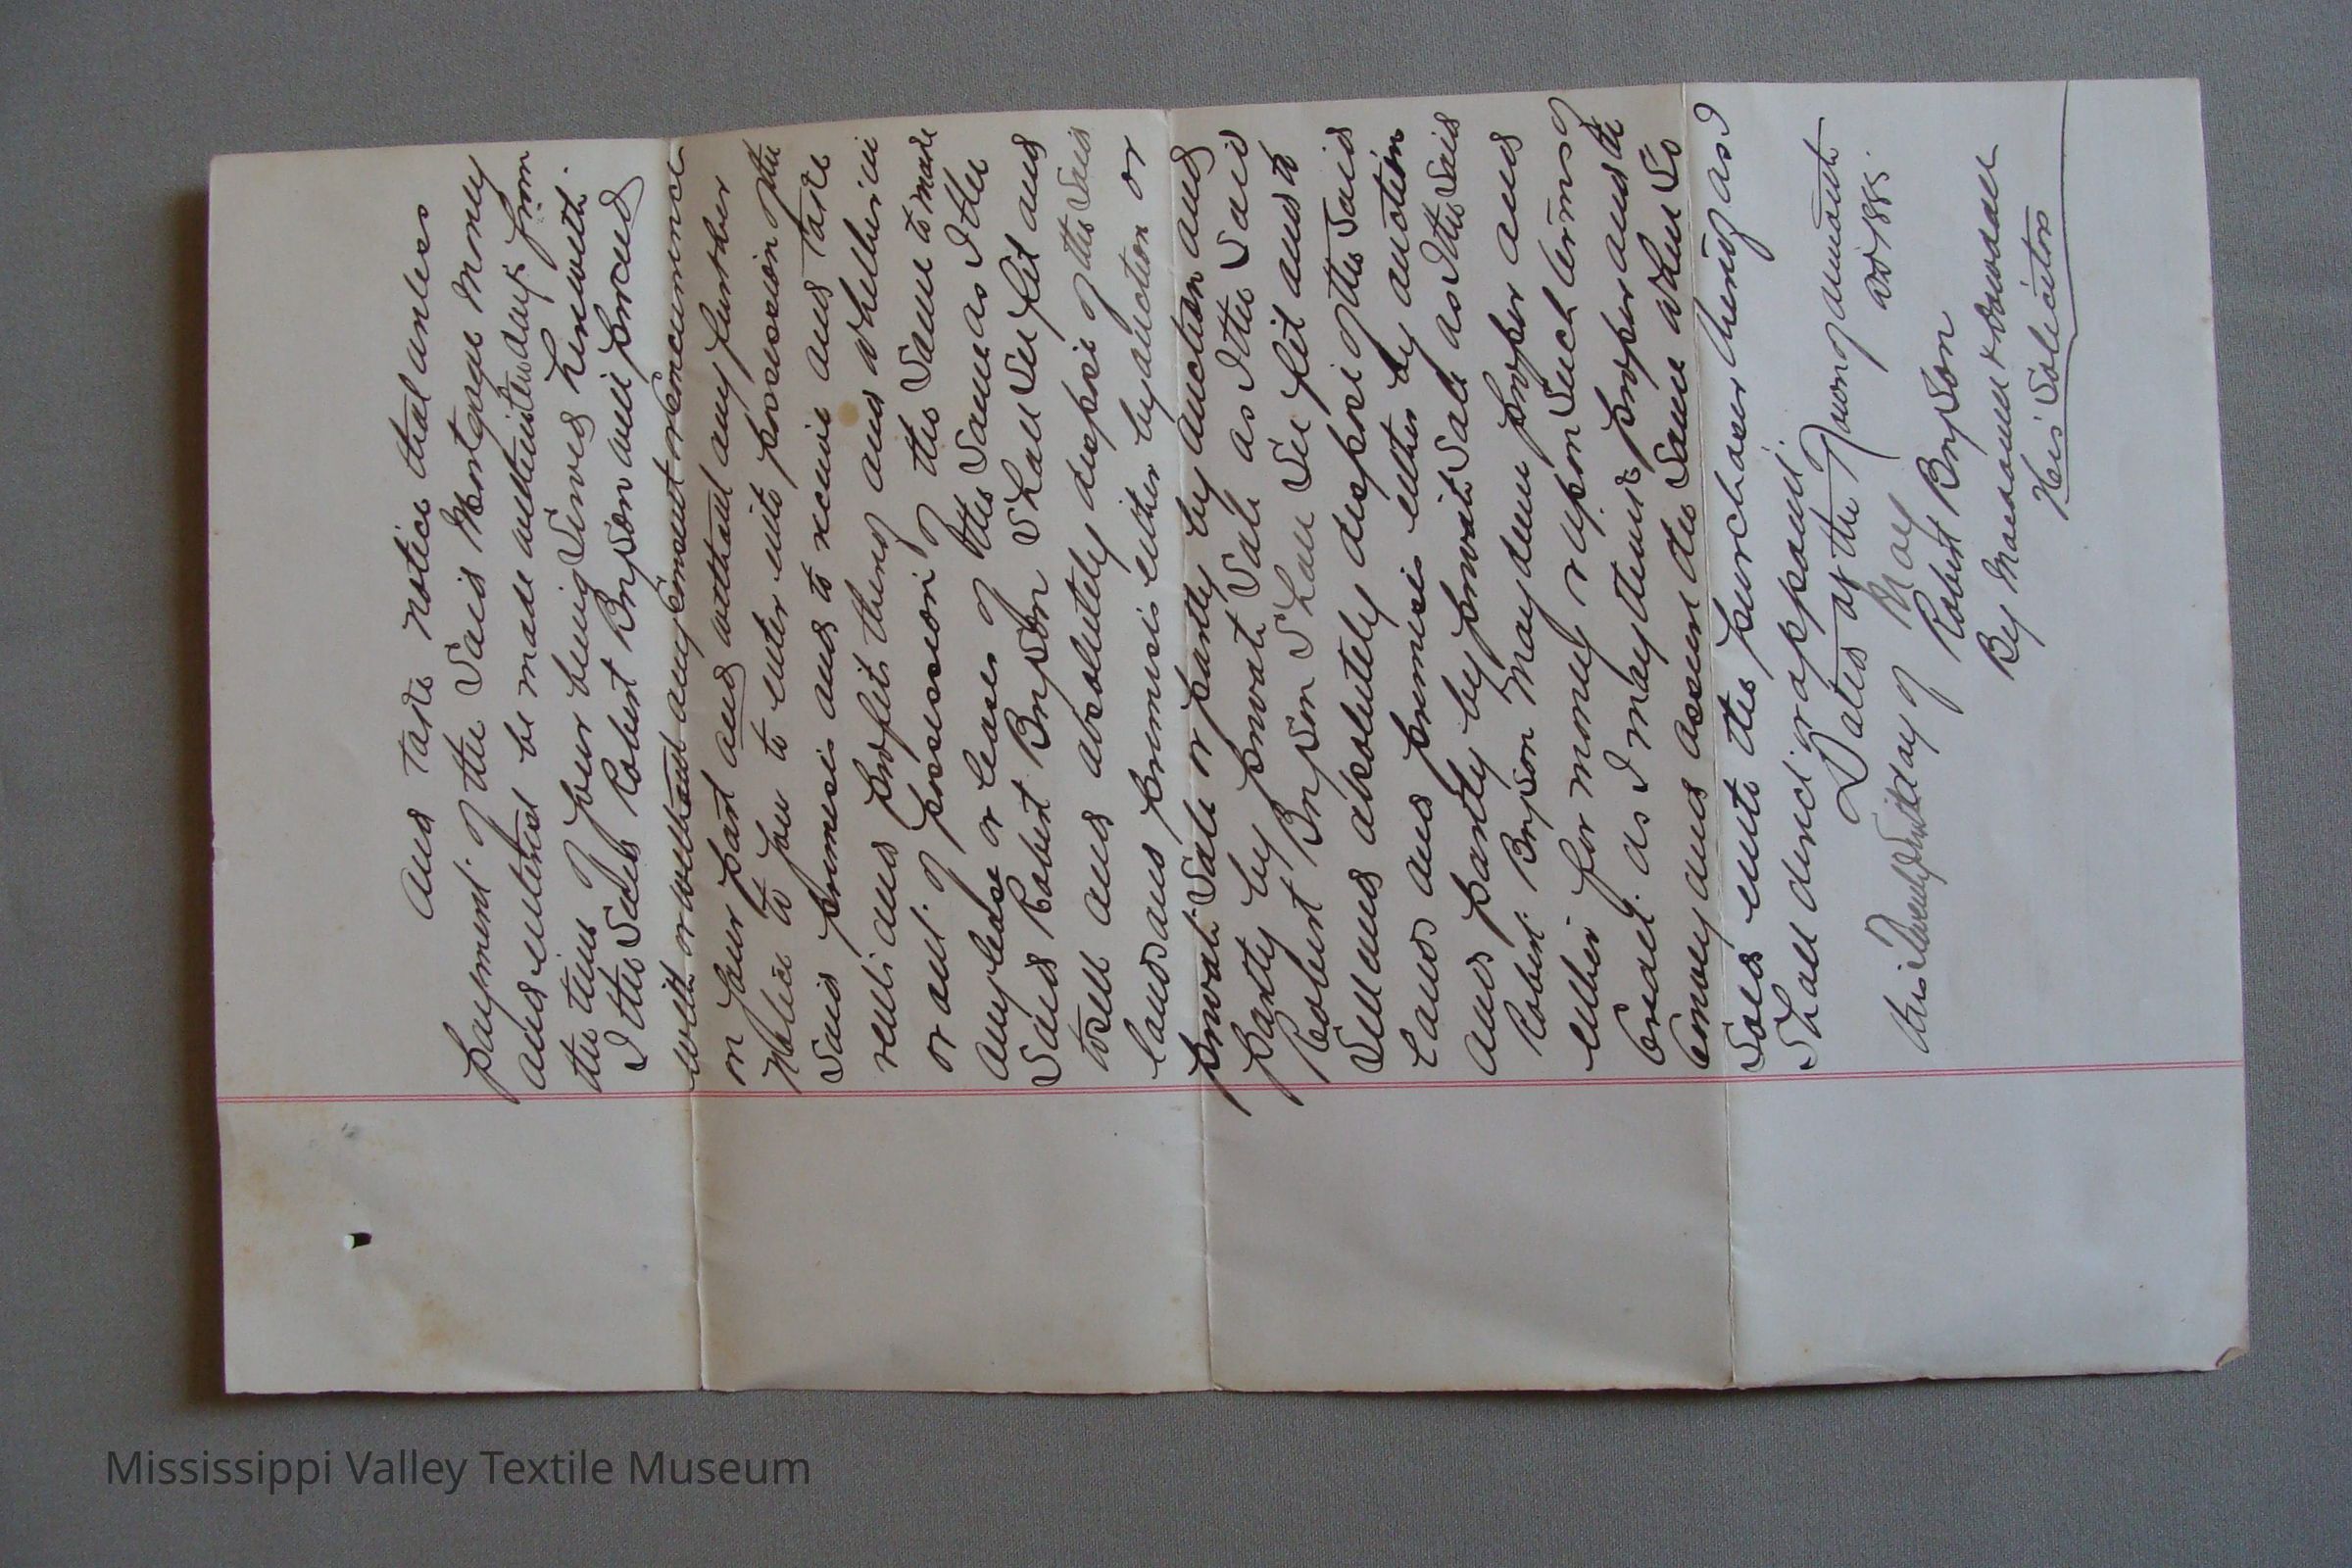 And take notice that unless
payment of the said Mortgage Money
and interest be made within ten days from
the time of your being served herewith.
I the said Robert Bryson will proceed
with or without any consent or concurrence
on your part and without any further
Notice to you to enter into possession of the
said premises and to receive and take
rents and profits thereof and whether in
or out of possession of the same to make
any lease or leases of the same as I the
said Robert Bryson shall see fit and
to sell and absolutely dispose of the said
lands and premises either by auction or
private sale or partly by auction and
partly by private sale as I the said
Robert Bryson shall see fit and to
sell and absolutely dispose of the said
lands and premises either by auction
and partly by private sale as I the said
Robert Bryson may deem proper and
either for money or upon such terms of
credit as I may think proper and to
convey and assure the same when so
sold unto the purchaser thereof as I
shall direct or appoint.
Dated at the Town of Almonte
this Twenty day of May AD 188
Robert Bryson
By
His Solicitors
Mississippi Valley Textile Museum